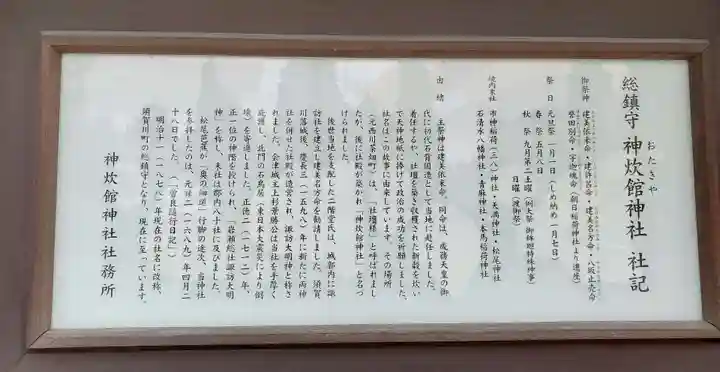 おたきや
総鎮守 神炊館神社 社記
御祭神 建美依米命・建許呂命・建美名方命・八坂止売命
誉田別命・宇迦魂命（朝日稲荷神社より遷座）
祭日 元旦祭 一月一日（しめ納め 一月七日）
春祭 五月八日
秋祭 九月第二土曜（例大祭 御神廻特殊神事）
日曜（渡御祭）
境内末社 市神稲荷（三八）神社・天満神社・松尾神社
石清水八幡神社・青麻神社・本馬稲荷神社
由緒 主祭神は建美依米命。同命は、成務天皇の御
代に初代石背国造として当地に赴任しました。
着任するや、社壇を築き収穫された新穀を炊い
て天神地祇に捧げて政治の成功を祈願しました。
社名はこの故事に由来しています。その場所
（元西川茶畑町）は、「社壇様」と呼ばれまし
たが、後に社殿が築かれ「神炊館神社」と名づ
けられました。
後世当地を支配した二階堂氏は、城郭内に諏
訪社を建立し建美名方命を勧請しました。須賀
川落城後、慶長三（一五九八）年に新たに両神
社を併せた社殿が造営され、諏訪大明神と称さ
れました。会津城主上杉景勝公は当社を手厚く
庇護し、北門の石鳥居（東日本大震災により倒
壊）を寄進しました。正徳二（一七一二）年、
正一位の神階を授けられ、「岩瀬総社諏訪大明
神」を称し、末社は郡内八十社に及びました。
松尾芭蕉が「奥の細道」行脚の途次、当神社
を参拝したのは、元禄二（一六八九）年四月二
十八日でした。（「曽良随行日記」）
明治十一（一八七八）年現在の社名に改称、
須賀川町の総鎮守となり、現在に至っています。
神炊館神社社務所